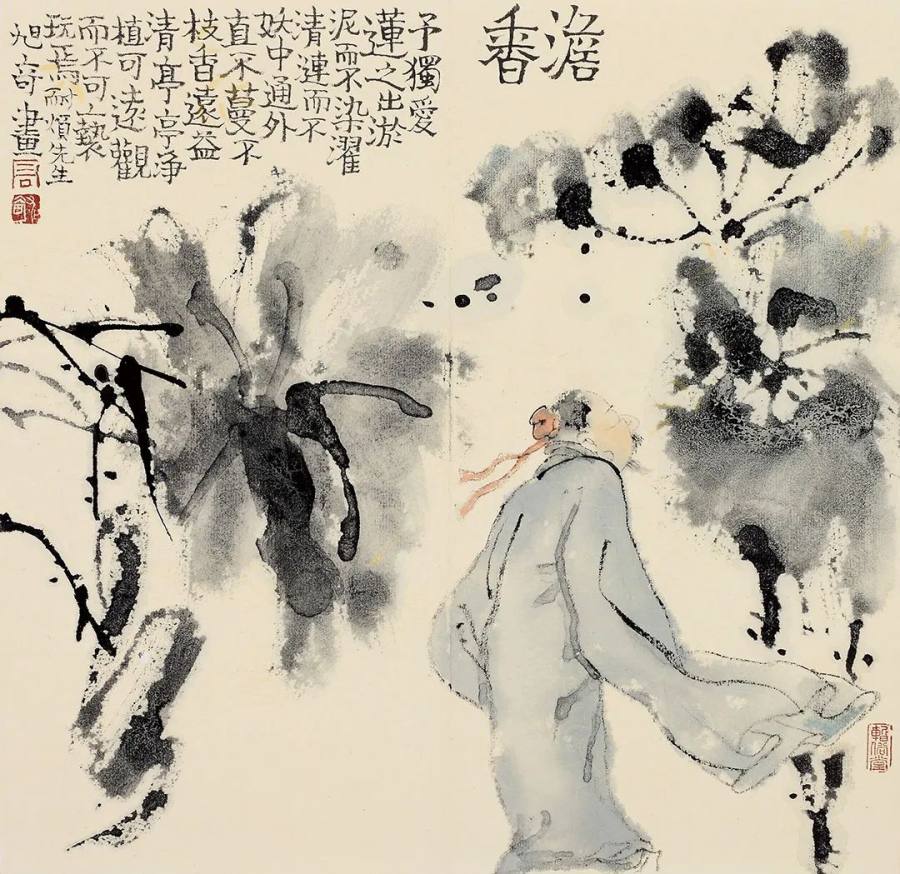 澹香
予獨愛
蓮之出淤
泥而不染濯
清漣而不
妖中通外
直不蔓不
枝香遠益
清亭亭净
植可遠觀
而不可褻
玩焉耐煩先生
旭奇畫